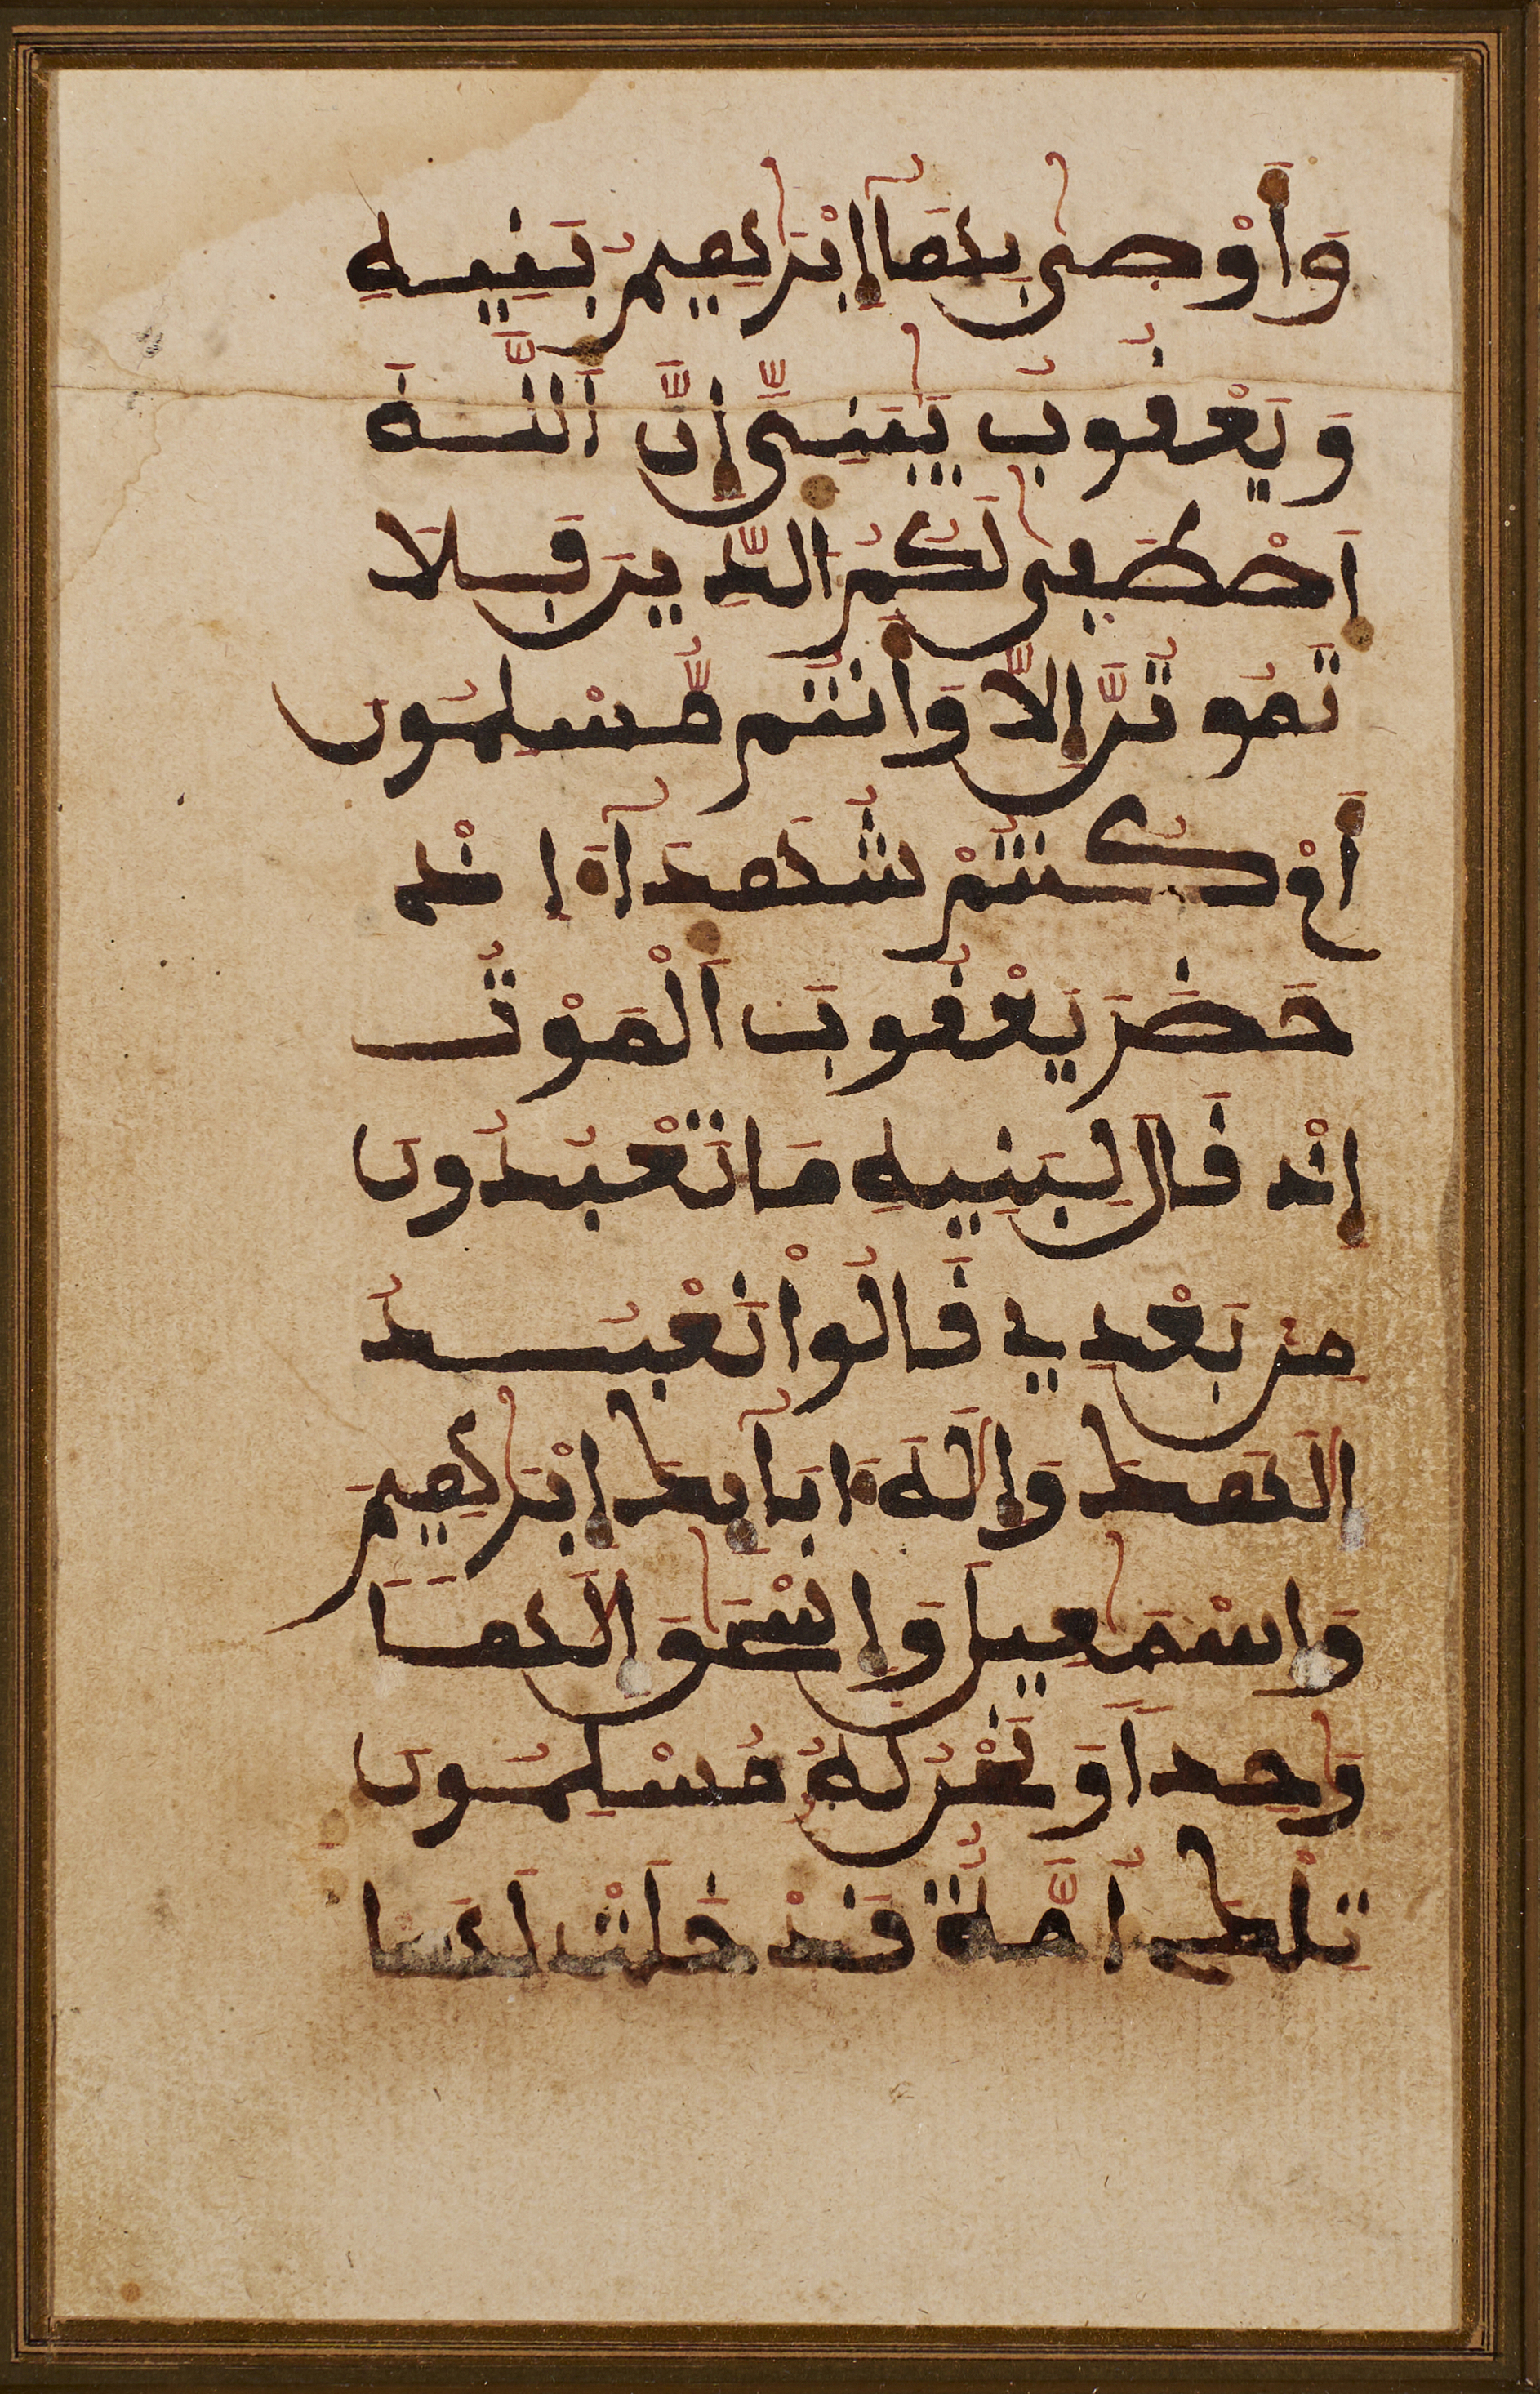 وَأَوْصىٰ بِهَآ إِبْرَٰهِيمُ بَنِيهِ
وَيَعْقُوبُ يَٰبَنِيَّ إِنَّ اَللَّهَ
اَصْطَفىٰ لَكُمُ الدِّينَ فَلَا
تَمُوتُنَّ إِلَّا وَأَنتُم مُّسْلِمُونَ
أَمْ كُنتُمْ شُهَدَآءَ اِذْ
حَضَرَ يَعْقُوبَ اَلْمَوْتُ
إِذْ قَالَ لِبَنِيهِ مَا تَعْبُدُونَ
مِنْ بَعْدِي قَالُواْ نَعْبُدُ
إِلَٰهَكَ وَإِلَٰهَ ءَابَآئِكَ إِبْرَٰهِيمَ
وَإِسْمَٰعِيلَ وَإِسْحَٰقَ إِلَٰهاً
وَٰحِداً وَنَحْنُ لَهُ مُسْلِمُونَ
تِلْكَ أُمَّةٌ قَدْ خَلَتْ لَهَا